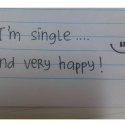 I'm single ....
nd very happy!